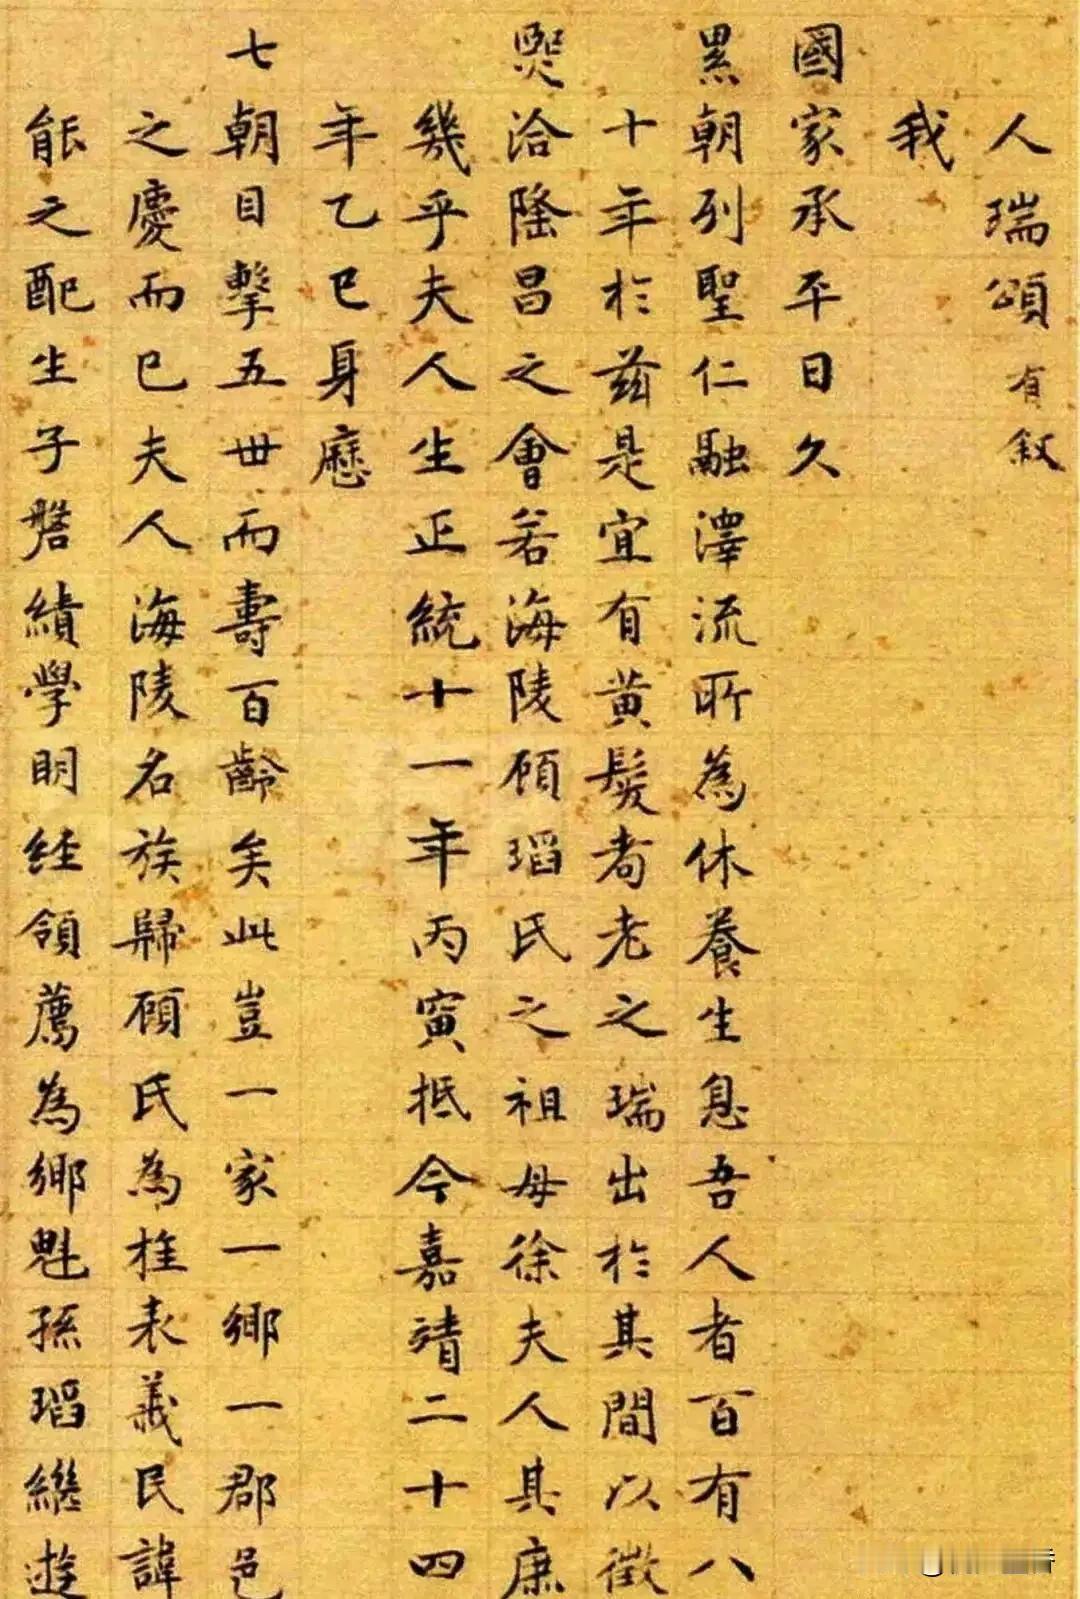 人瑞頌有叙
我
國家承平日久
累朝列聖仁融澤流所為休養生息吾人者百有八
十年於兹是宜有黄髮耇老之瑞出於其間以徵
熙洽隆昌之會若海陵顧瑫氏之祖母徐夫人其庶
幾乎夫人生正統十一年丙寅抵今嘉靖二十四
年乙巳身歷
七朝目擊五世而壽百齡矣此豈一家一鄉一郡邑
之慶而已夫人海陵名族歸顧氏為柱表義民諱
能之配生子磐績學明經領薦為鄉魁孫瑫繼遊